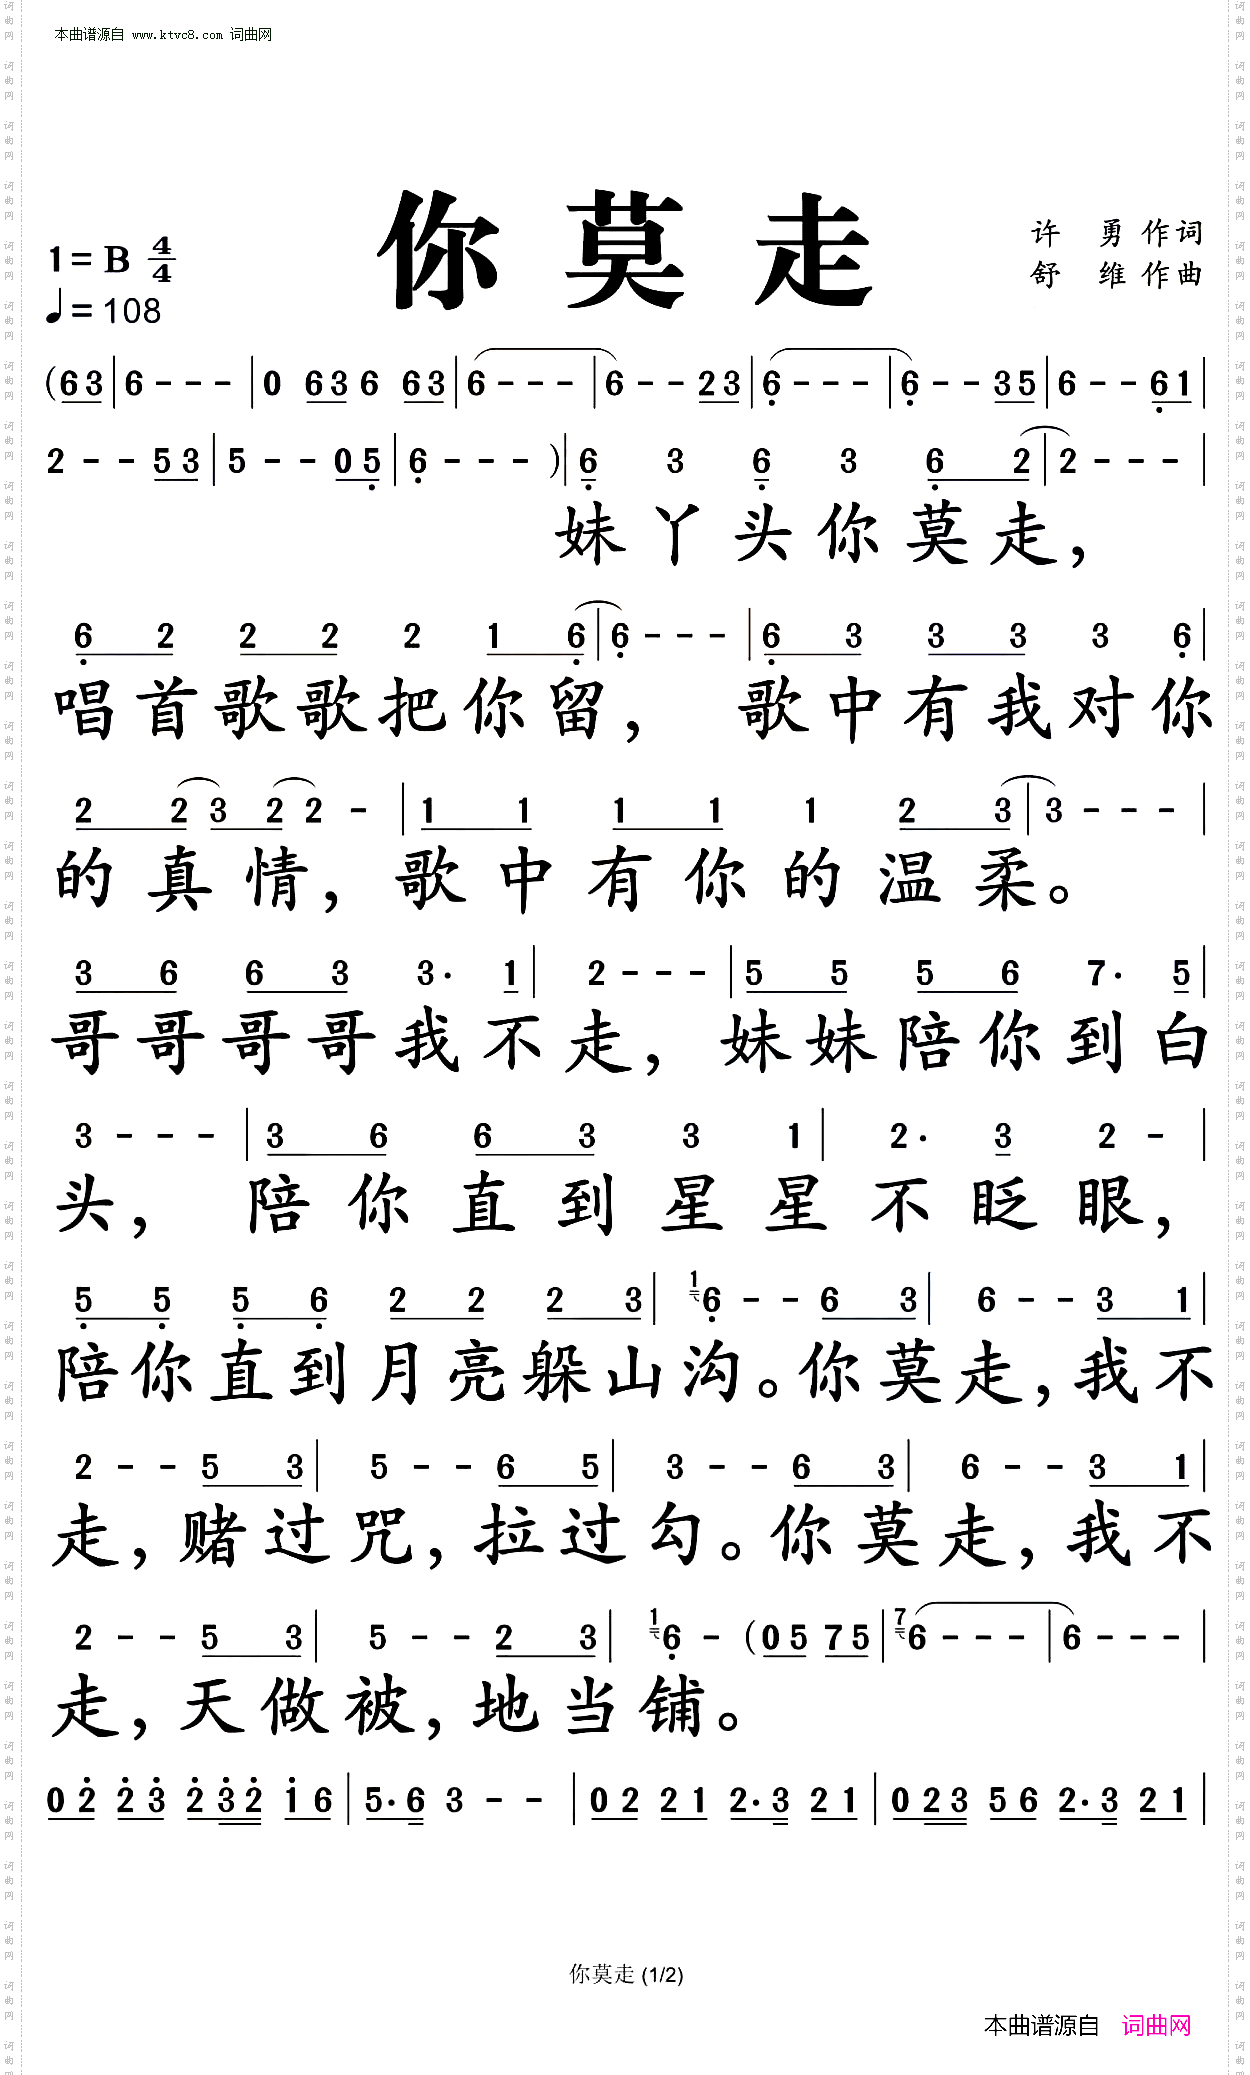 本曲谱源自 www.ktvc8.com 词曲网
你莫走
许 勇 作词
舒 维 作曲
1=B 4/4
♩=108
(63|6---|0 63 6 63|6---|6--23|6---|6--35|6--61|
2--53|5--05|6---)|6 3 6 3 6 2|2---|
妹丫头你莫走，
6 2 2 2 2 1 6|6---|6 3 3 3 3 6|
唱首歌歌把你留，歌中有我对你
2 2 3 2 2 -|1 1 1 1 1 2 3|3---|
的真情，歌中有你的温柔。
3 6 6 3 3· 1|2---|5 5 5 6 7· 5|
哥哥哥哥我不走，妹妹陪你到白
3---|3 6 6 3 3 1|2· 3 2 -|
头，陪你直到星星不眨眼，
5 5 5 6 2 2 2 3|1 6--6 3|6--3 1|
陪你直到月亮躲山沟。你莫走，我不
2--5 3|5--6 5|3--6 3|6--3 1|
走，赌过咒，拉过勾。你莫走，我不
2--5 3|5--2 3|1 6-(05 75|7 6---|6---|
走，天做被，地当铺。
02 23 232 16|5·6 3--|02 21 2·3 21|023 56 2·3 21|
你莫走 (1/2)
本曲谱源自 词曲网